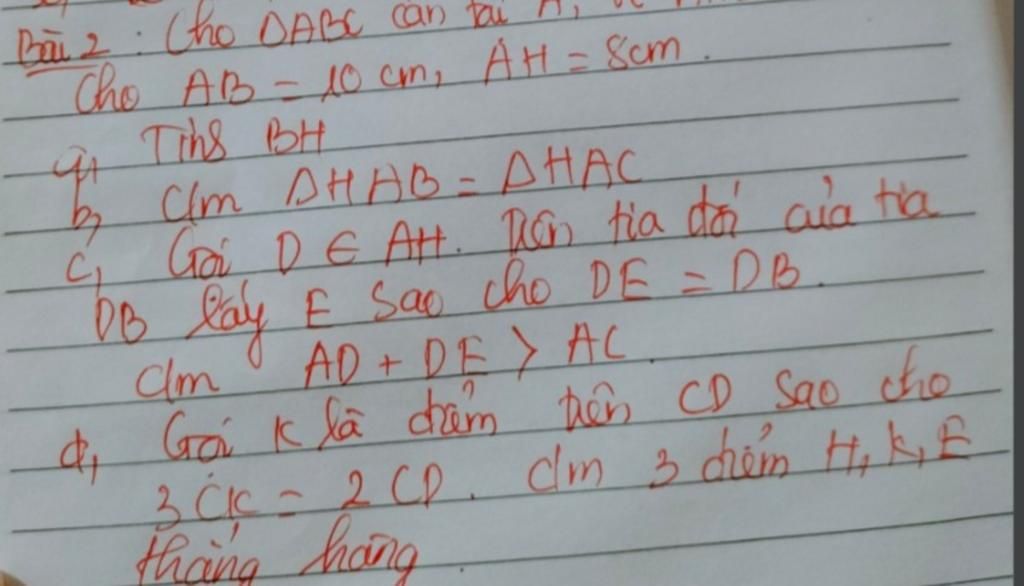 Bài 2 : Cho ΔABC cân tại A,
Cho AB = 10 cm, AH = 8cm.
a, Tính BH
b, C/m ΔHAB = ΔHAC
c, Gọi D ∈ AH. Trên tia đối của tia
DB lấy E sao cho DE = DB.
C/m AD + DE > AC.
d, Gọi K là điểm trên CD sao cho
3CK = 2CD. C/m 3 điểm H, K, E
thẳng hàng.